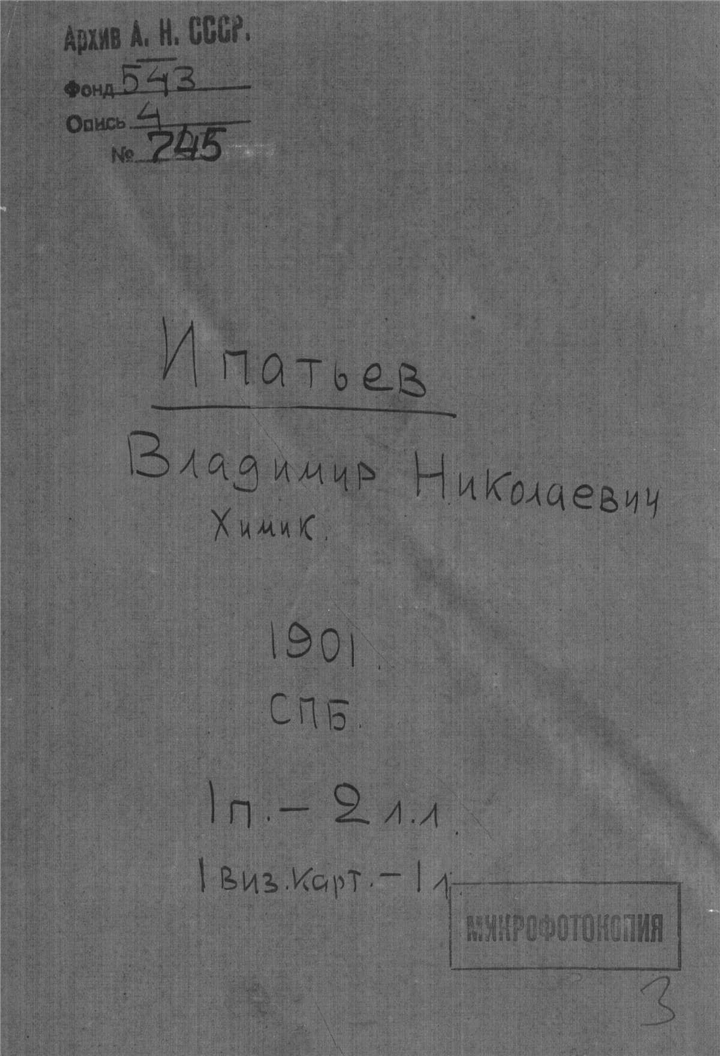 Архив А. Н. СССР.
Фонд 543
Опись 4
№ 745
Ипатьев
Владимир Николаевич
Химик.
1901.
СПБ.
1 п. – 2 л.л.
1 виз. карт. – 1 л.
МИКРОФОТОКОПИЯ
3